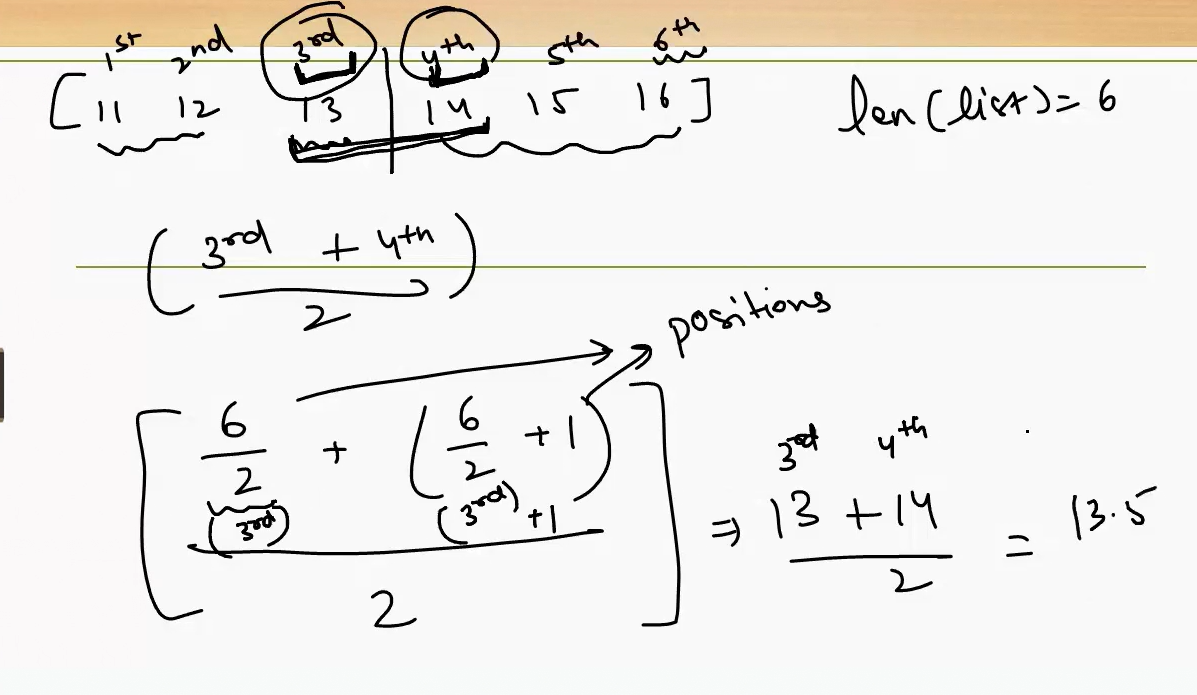 1st 2nd 3rd 4th 5th 6th
[11 12 13 14 15 16] len(list)= 6
(3rd + 4th)
2
positions
[6/2 + (6/2 + 1)] 3rd 4th
(3rd) (3rd) +1 ⇒ 13 + 14 = 13.5
2 2